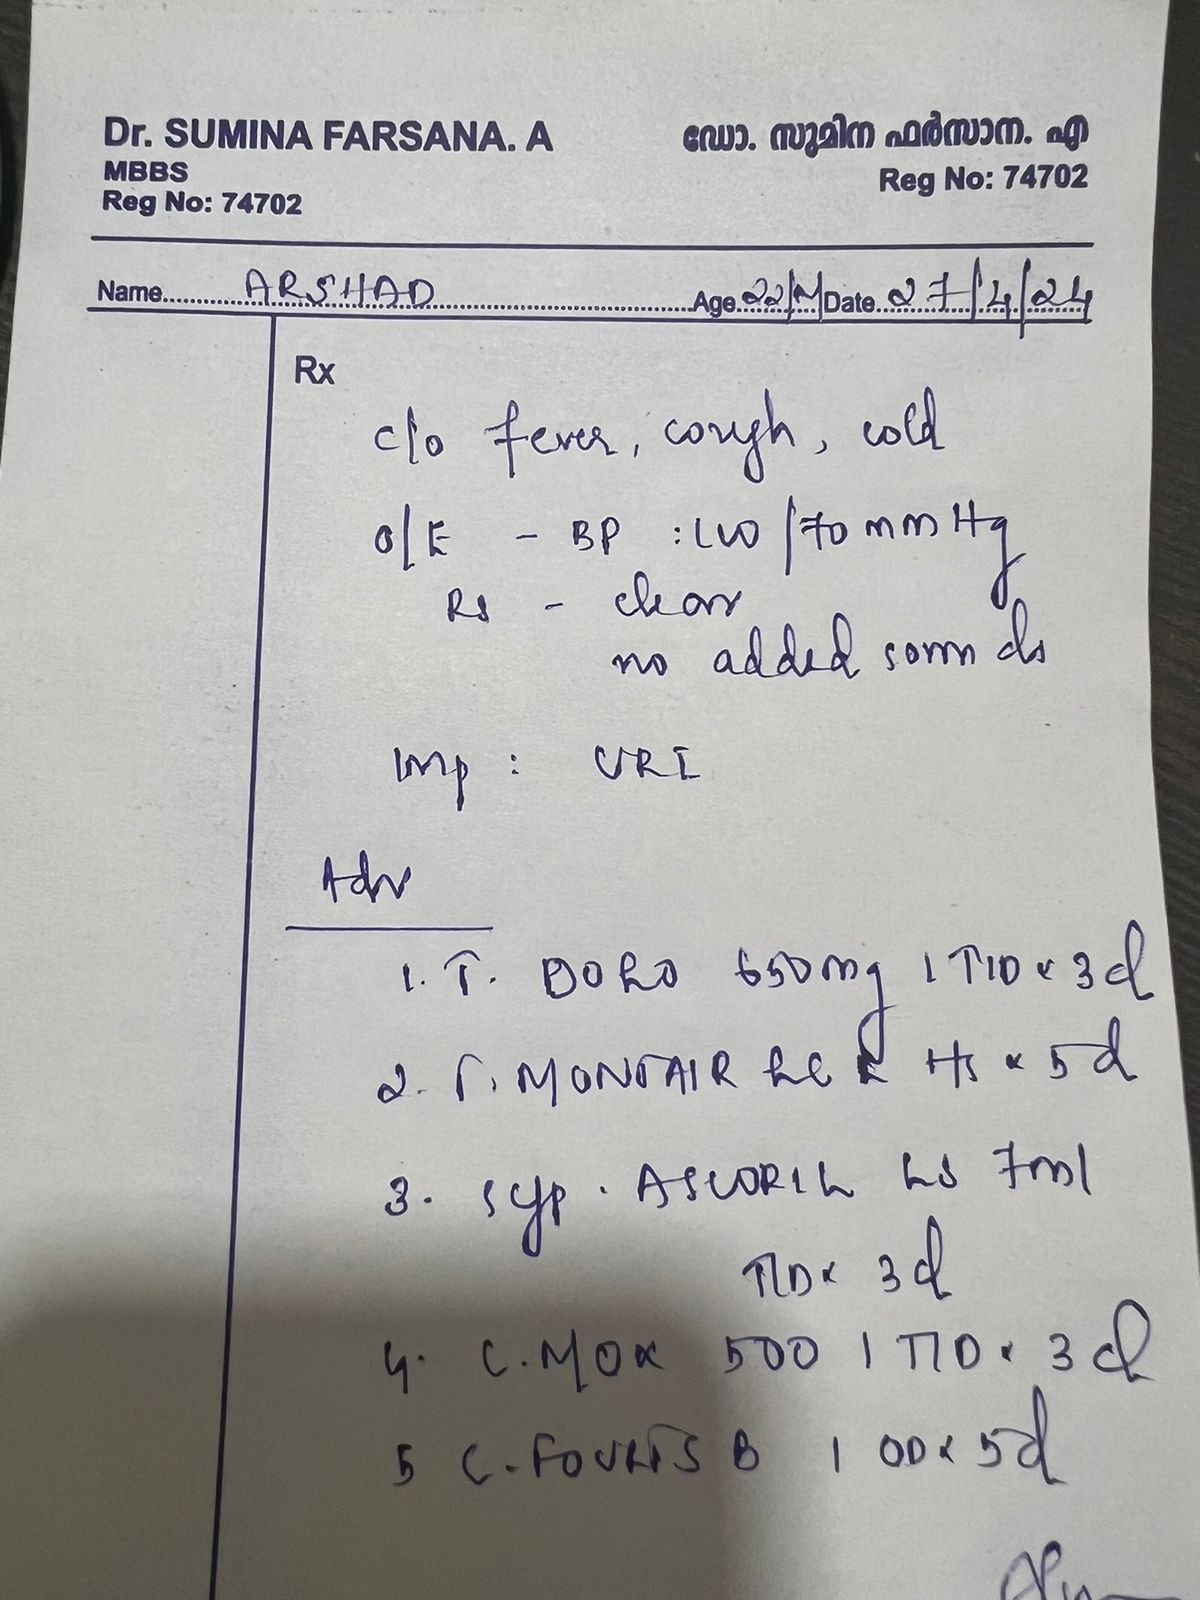 Dr. SUMINA FARSANA. A
MBBS
Reg No: 74702
ഡോ. സുമിന ഫർസാന. എ
Reg No: 74702
Name ARSHAD Age 22/M Date 27/4/24
Rx
c/o fever, cough, cold
O/E - BP : 110/70 mmHg
RS - clear
no added sounds
Imp : URI
Adv
1. T. DOLO 650mg 1 TID x 3d
2. T. MONTAIR LC HS x 5d
3. syp. ASCORIL LS 7ml
TID x 3d
4. C. MOX 500 1 TID x 3d
5 C. FOURTS B 1 OD x 5d